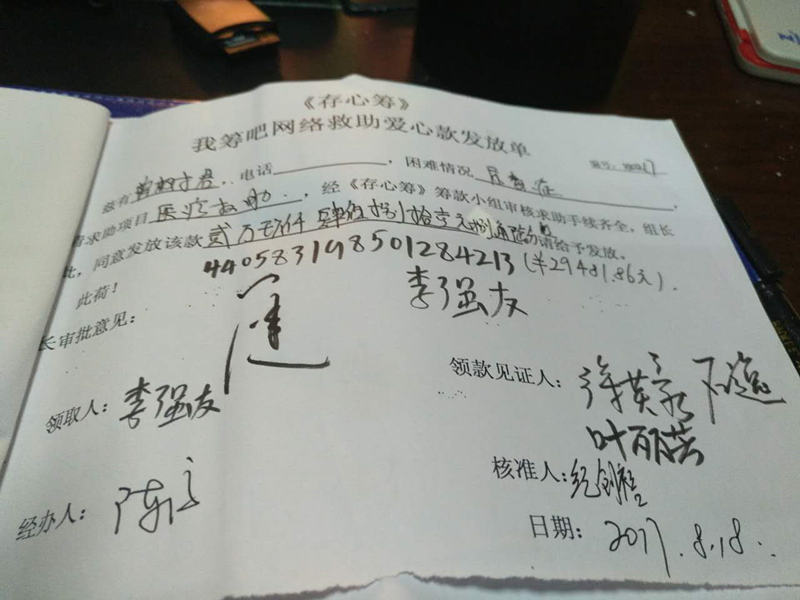 《存心筹》
我筹吧网络救助爱心款发放单
编号：
兹有 电话 ，困难情况 尿毒症
请求助项目 医疗救助 ，经《存心筹》筹款小组审核求助手续齐全，组长
批，同意发放该款 贰万 仟肆佰捌拾壹元捌角陆分请给予发放。
此荷！
440583198501284213（¥29481.86元）.
李强友
长审批意见：
领取人：李强友
领款见证人：
叶丽芸
经办人：陈
核准人：
日期：2017.8.18.